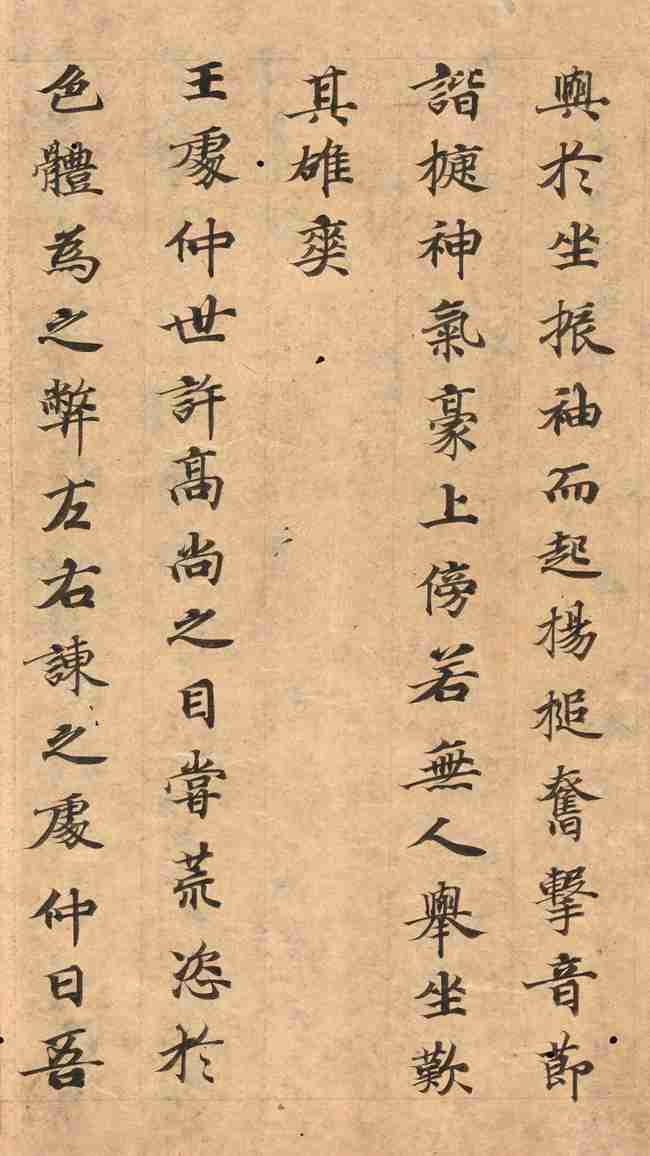 與於坐振袖而起揚槌奮擊音節
諧捷神氣豪上傍若無人舉坐歎
其雄爽
王處仲世許髙尚之目嘗荒恣於
色體為之弊左右諫之處仲曰吾